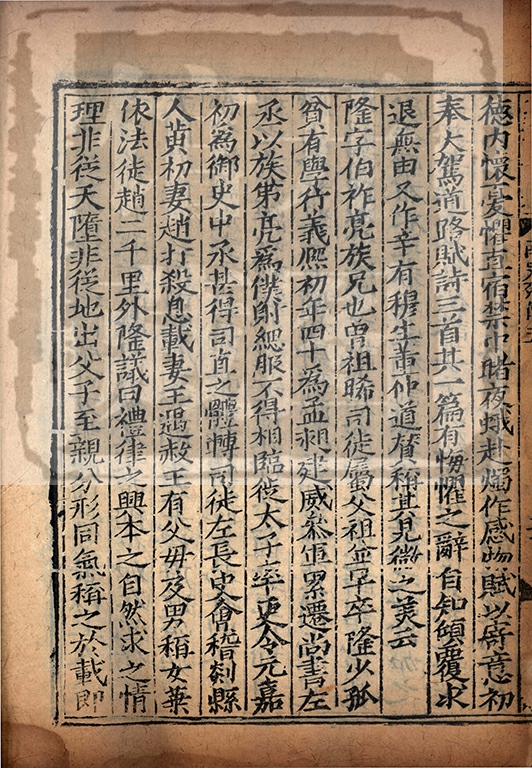 德内懷憂懼直宿禁中睹夜蛾赴燭作感物賦以寄意初
奉大駕道路賦詩三首其一篇有悔懼之辭自知傾覆求
退無由又作辛有穆生董仲道贊稱其見微之美云
隆字伯祚亮族兄也曾祖晞司徒屬父祖並早卒隆少孤
貧有學行義熙初年四十為孟昶建威參軍累遷尚書左
丞以族弟亮為僕射緦服不得相臨徙太子率更令元嘉
初為御史中丞甚得司直之體轉司徒左長史會稽剡縣
人黄初妻趙打殺息載妻王遇赦王有父母及男稱女葉
依法徙趙二千里外隆議曰禮律之興本之自然求之情
理非從天墮非從地出父子至親分形同氣稱之於載即